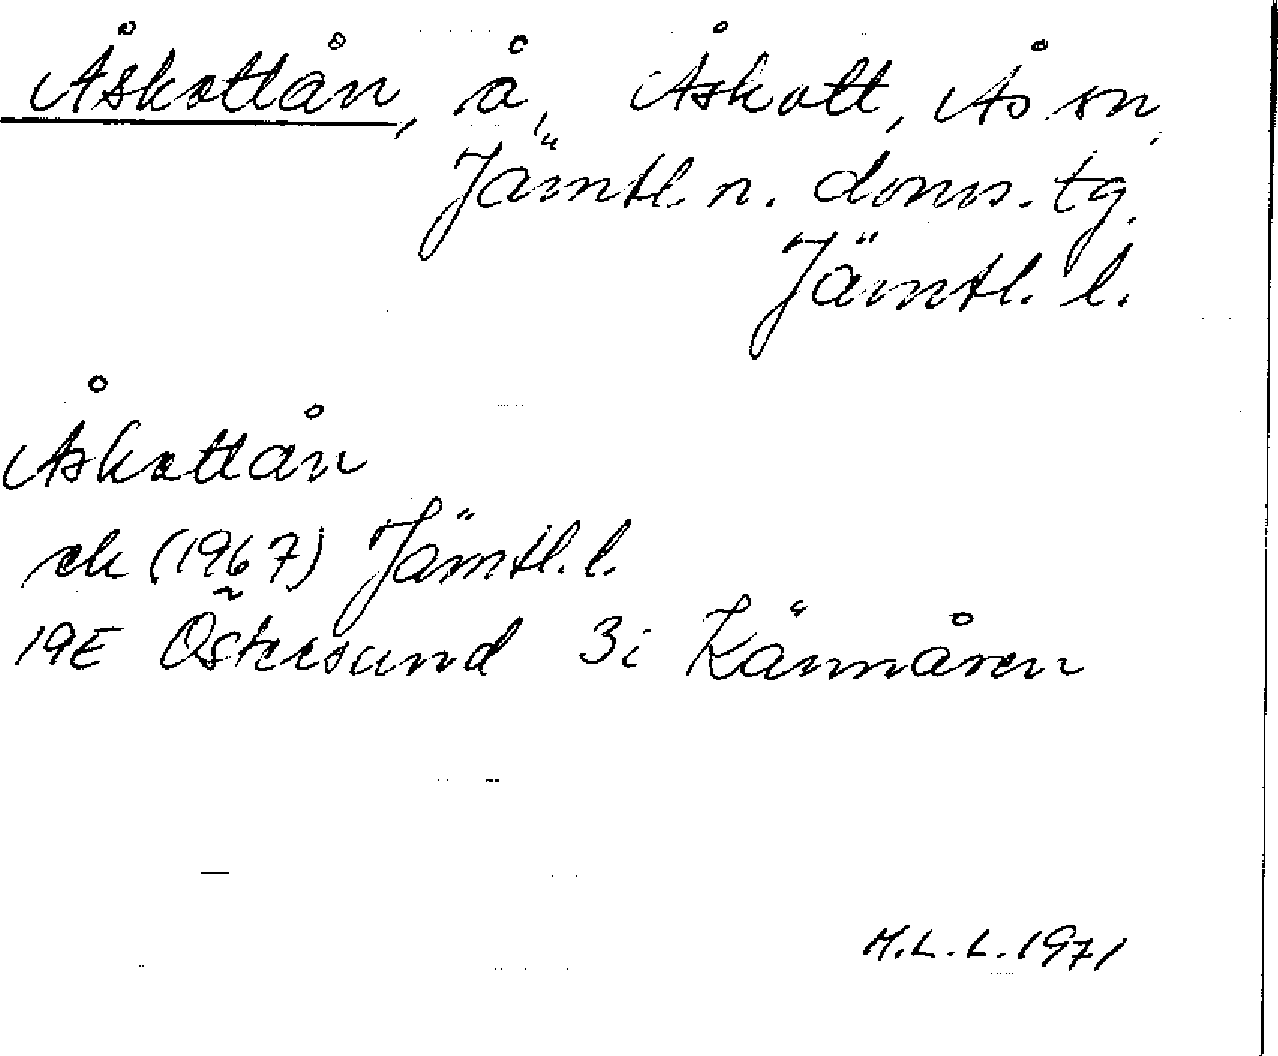 Åskottån, å, Åskott, Ås sn,
Jämtl. n. doms. tg.
Jämtl. l.
Åskottån
ek (1967) Jämtl. l.
19E Östersund 3i Kännåsen
M.L.L. 1971